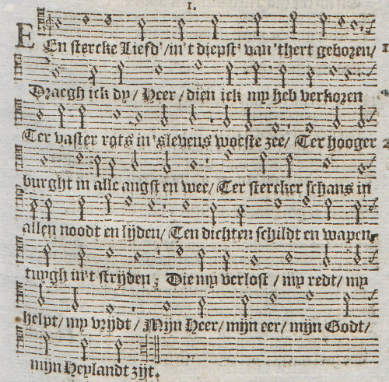 1.
EEn stercke Liefd'/in't diepst' van'thert geboren/
Draegh ick dy/Heer/dien ick my heb verkoren
Ter vaster rots in'slevens woeste zee/ Ter hooger
burght in alle angst en wee/Ter stercker schans in
allen noodt en lijden/ Ten dichten schildt en wapen
tuygh in't strijden; Die my verlost /my redt/ my
helpt/my vrijdt/Mijn Heer/mijn eer/mijn Godt/
mijn Heylandt zijt.